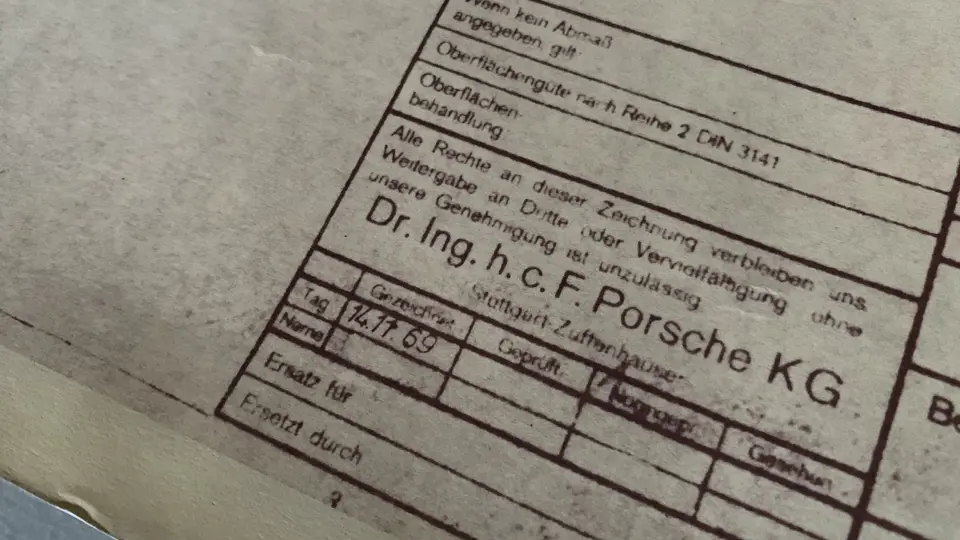 Wenn kein Abmaß
angegeben, gilt:
Oberflächengüte nach Reihe 2 DIN 3141
Oberflächen-
behandlung
Alle Rechte an dieser Zeichnung verbleiben uns.
Weitergabe an Dritte oder Vervielfältigung ohne
unsere Genehmigung ist unzulässig
Dr. Ing. h. c. F. Porsche KG
Stuttgart-Zuffenhausen
Gezeichnet Geprüft Normgepr. Gesehen
Tag 14.11.69
Name
Ersatz für
Ersetzt durch
3